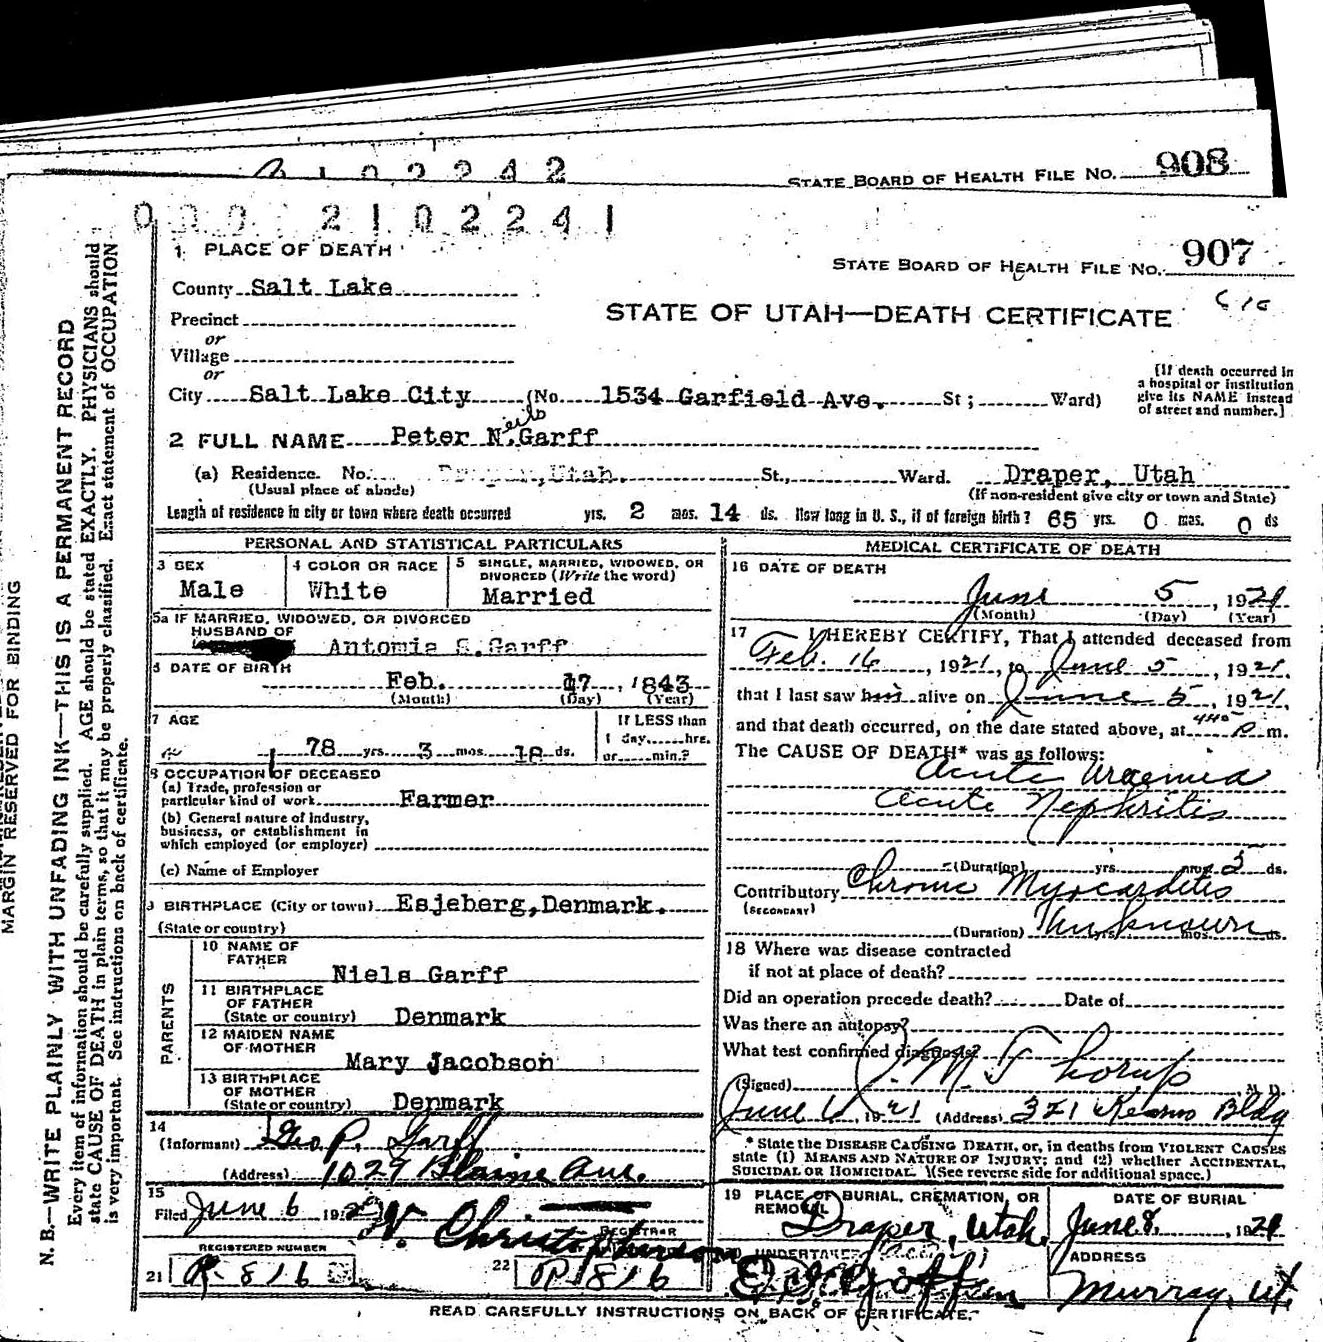 2 1 0 2 2 4 2
STATE BOARD OF HEALTH FILE NO. 908
0 0 0 2 1 0 2 2 4 1
1 PLACE OF DEATH
STATE BOARD OF HEALTH FILE NO. 907
County Salt Lake
STATE OF UTAH—DEATH CERTIFICATE
Precinct
or
Village
or
City Salt Lake City (No 1534 Garfield Ave. St; Ward)
[If death occurred in
a hospital or institution
give its NAME instead
of street and number.]
2 FULL NAME Peter Neils Garff
(a) Residence. No. Draper, Utah. St., Ward. Draper, Utah
(Usual place of abode) (If non-resident give city or town and State)
Length of residence in city or town where death occurred yrs. 2 mos. 14 ds. How long in U. S., if of foreign birth? 65 yrs. 0 mos. 0 ds
PERSONAL AND STATISTICAL PARTICULARS
3 SEX
Male
4 COLOR OR RACE
White
5 SINGLE, MARRIED, WIDOWED, OR
DIVORCED (Write the word)
Married
5a IF MARRIED, WIDOWED, OR DIVORCED
HUSBAND OF
Antomia S. Garff
6 DATE OF BIRTH
Feb. 17, 1843
(Month) (Day) (Year)
7 AGE
78 yrs. 3 mos. 18 ds.
If LESS than
1 day, hrs.
or min.?
8 OCCUPATION OF DECEASED
(a) Trade, profession or
particular kind of work Farmer
(b) General nature of industry,
business, or establishment in
which employed (or employer)
(c) Name of Employer
9 BIRTHPLACE (City or town) Esjeberg, Denmark.
(State or country)
PARENTS
10 NAME OF
FATHER
Niels Garff
11 BIRTHPLACE
OF FATHER
(State or country) Denmark
12 MAIDEN NAME
OF MOTHER
Mary Jacobson
13 BIRTHPLACE
OF MOTHER
(State or country) Denmark
14
(Informant) Geo P. Garff
(Address) 1029 Blaine Ave.
15
Filed June 6 192 W. Christopherson
REGISTRAR
REGISTERED NUMBER
21 R-816
22 R 816
MEDICAL CERTIFICATE OF DEATH
16 DATE OF DEATH
June 5, 1921
(Month) (Day) (Year)
17 I HEREBY CERTIFY, That I attended deceased from
Feb. 16, 1921, to June 5, 1921,
that I last saw him alive on June 5, 1921,
and that death occurred, on the date stated above, at 440 P. m.
The CAUSE OF DEATH* was as follows:
Acute Uraemia
Acute Nephritis
(Duration) yrs. mos. 3 ds.
Contributory Chronic Myocarditis
(SECONDARY)
(Duration) Unknown yrs. mos. ds.
18 Where was disease contracted
if not at place of death?
Did an operation precede death? Date of
Was there an autopsy?
What test confirmed diagnosis?
(Signed) J. M Thorup M. D.
June 6, 1921 (Address) 321 Kearns Bldg
* State the DISEASE CAUSING DEATH, or, in deaths from VIOLENT CAUSES
state (1) MEANS AND NATURE OF INJURY; and (2) whether ACCIDENTAL,
SUICIDAL OR HOMICIDAL. (See reverse side for additional space.)
19 PLACE OF BURIAL, CREMATION, OR
REMOVAL
Draper, Utah
DATE OF BURIAL
June 8, 1921
UNDERTAKER
ADDRESS
Murray, Ut.
READ CAREFULLY INSTRUCTIONS ON BACK OF CERTIFICATE.
MARGIN RESERVED FOR BINDING
N. B.—WRITE PLAINLY WITH UNFADING INK—THIS IS A PERMANENT RECORD
Every item of information should be carefully supplied. AGE should be stated EXACTLY. PHYSICIANS should
state CAUSE OF DEATH in plain terms, so that it may be properly classified. Exact statement of OCCUPATION
is very important. See instructions on back of certificate.